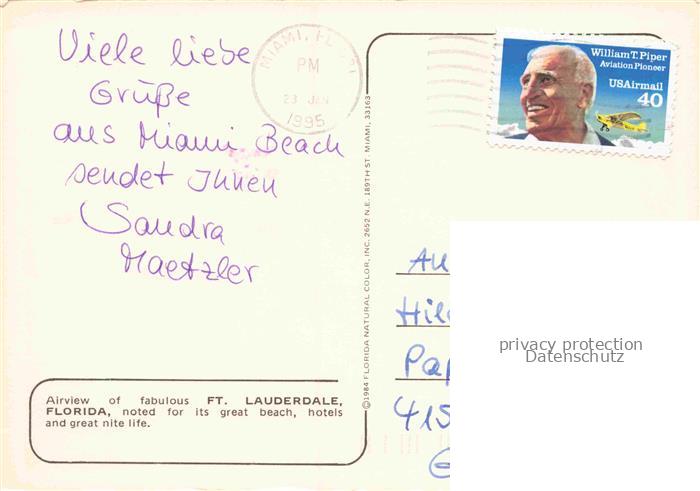 Viele liebe
Grüße
aus Miami Beach
sendet Ihnen
Sandra
Maetzler
Airview of fabulous FT. LAUDERDALE,
FLORIDA, noted for its great beach, hotels
and great nite life.
©1984 FLORIDA NATURAL COLOR, INC. 2652 N.E. 189TH ST. MIAMI, 33163
MIAMI, FL
PM
23 JAN
1995
William T. Piper
Aviation Pioneer
USAirmail
40
An
Hil
Pap
415
privacy protection
Datenschutz